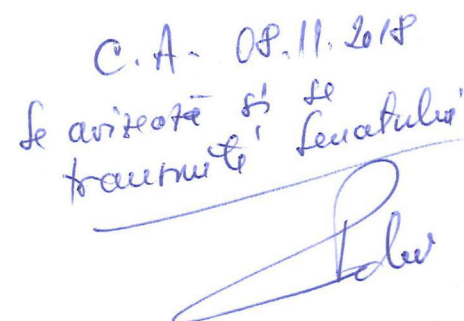 C.A. 08.11.2018
Se avizează și se
transmite Senatului